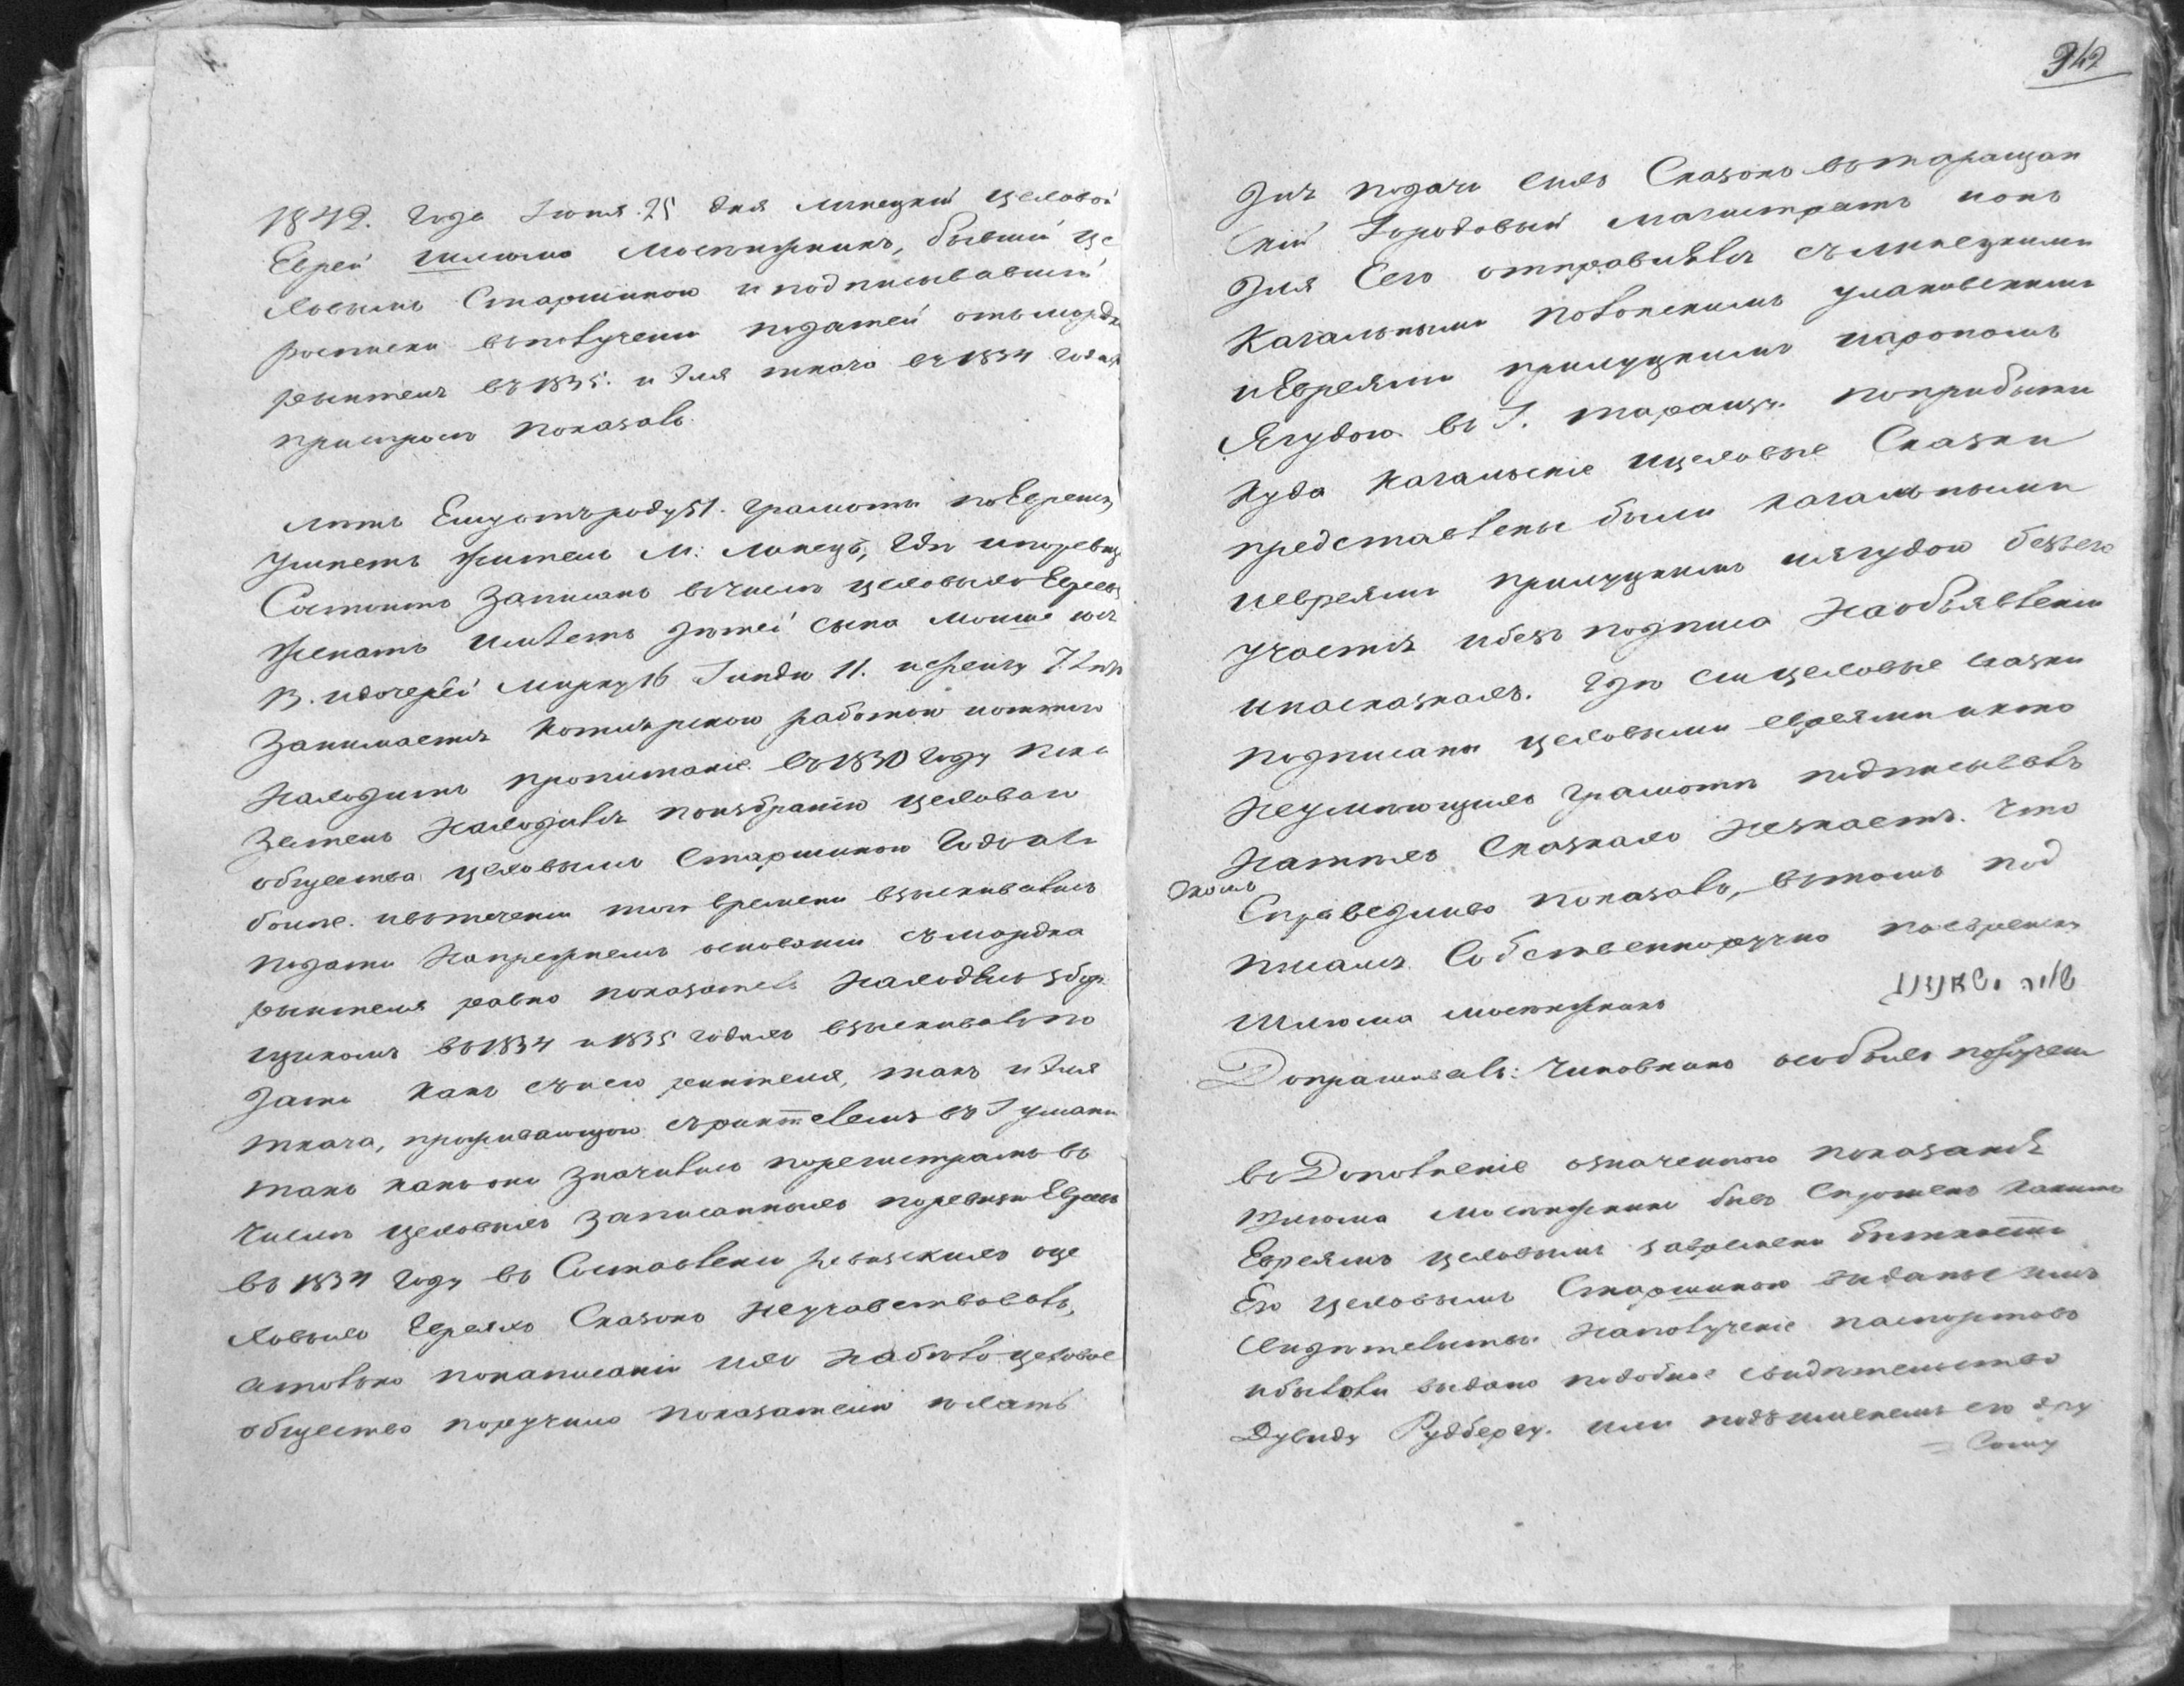 342
1842. года Июня 25 дня Линецкий цеховой
Еврей Шлиома Мостижникъ, бывший це
ховымъ Старшиною и подписывавший
росписки въ получении податей отъ мордка
рыхтеля въ 1835. и Эля ткача въ 1834 годахъ
при спросе показалъ.
Летъ Ему отъ роду 51. Грамоты по Еврейску
умиетъ житель М: Линецъ, где и по ревизии
Состоитъ Записанъ въ числе цеховыхъ Евреевъ
женатъ имеетъ детей сына Мошке
13. и дочерей Мирку 16 Гинди 11. и Фейгу 7 летъ
Занимается Котлярскою работою и оттого
Находитъ пропитание. Въ 1830 году
Затемъ Находился по избранию цеховаго
общества цеховымъ Старшиною Года
более. и въ течении того времени взыскивались
подати На прежнемъ основании съ мордка
рыхтеля равно показатель Находясь збор
щикомъ въ 1834 и 1835 годахъ взыскивалъ по
дати какъ съ него рихтеля, такъ и Эля
ткача, проживающого съ рихтелемъ въ Г умани
такъ какъ они Значились по регистрамъ въ
Числе цеховыхъ Записанныхъ по ревизии Евреевъ
въ 1834 году въ Составлении ревизскихъ о це
ховыхъ Евреяхъ Сказокъ Не участвовалъ,
а только по написании ихъ На бело цеховое
общество поручило показателю ехать
для подачи сихъ Сказокъ въ таращан
ский Городовый магистратъ
Для Сего отправился съ линецкими
Кагальными поволоскимъ улановскимъ
и Евреями прилуцкимъ
Ягудою въ Г. таращу. по прибытии
Куда Кагальские и цеховые Сказки
представлены были кагальными
и евреями прилуцкимъ и ягудою безъ его
участия и безъ подписа На объявлении
и на сказкахъ. Где сии цеховые сказки
подписаны цеховыми евреями и кто
Неумеющихъ Грамоты подписывалъ
На техъ Сказкахъ Не знаетъ. Что
Справедливо показалъ, въ томъ под
писался Собственноручно по еврейски
Шлиома Мостижникъ
Допрашивалъ: Чиновникъ особыхъ поручений
въ Дополнение означенного показания
Шлиома Мостижникъ бывъ Спрошенъ какимъ
Евреямъ цеховымъ за времени бытности
Его цеховымъ Старшиною выданы имъ
Свидетельства На получение паспортовъ
и былъ ли выданъ подобное свидетельство
Дувиду Рудбергу. или подъ именемъ его дру
= Гому